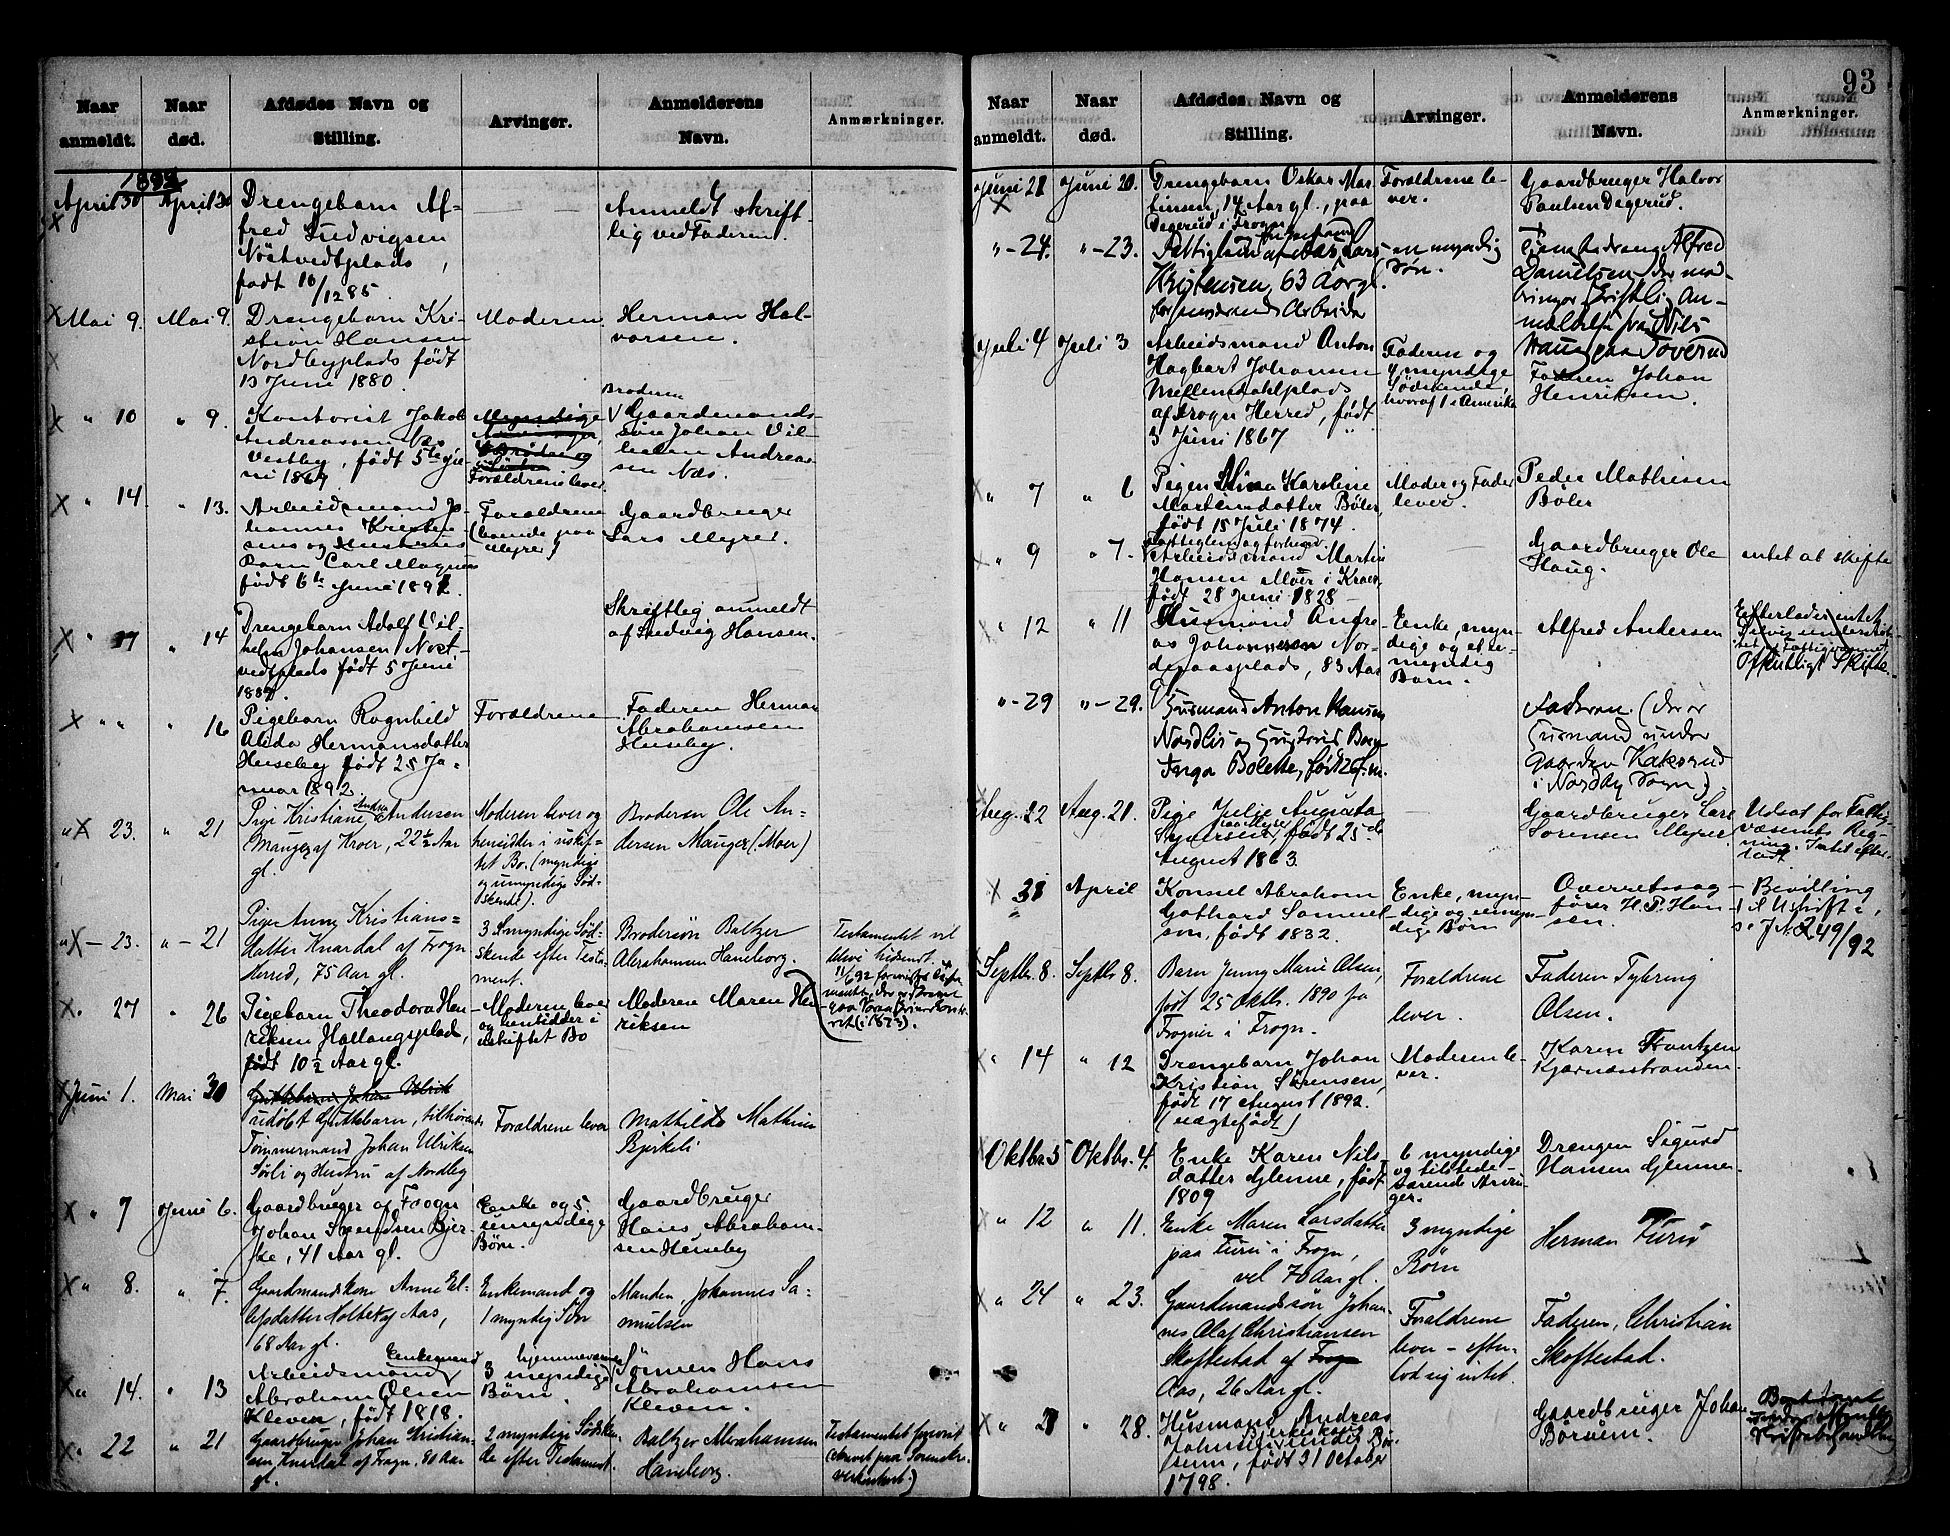 93
Naar anmeldt. Naar død. Afdødes Navn og Stilling. Arvinger. Anmelderens Navn. Anmærkninger.
1892
April 30 April 30 Drengebarn Al-
fred Ludvigsen
Nöstvedtplads,
født 16/12 85.
Anmeldt skrift-
lig ved Faderen.
Mai 9. Mai 9. Drengebarn Kri-
stian Hansen
Nordbyplads født
13 Juni 1880.
Moderen
Herman Hal-
vorsen.
" 10 " 9. Kontorist Jakob
Andreassen Næs
Vestby, født 5te
Forældrene lever
Broderen
Gaardmands-
søn Johan Vil-
helm Andreas-
sen Næs.
" 14. " 13. Arbeidsmand Jo-
hannes Kristen-
sens og Hustrues
Barn Carl Magnus
født 6te Juni 1891.
Forældrene
(boende paa
Myrer)
Gaardbruger
Lars Myrer.
" 17 " 14 Drengebarn Adolf Vil-
helm Johansen Nöst-
vedtplads født 5 Juni
Skriftlig anmeldt
af Ludvig Hansen.
" " " 16 Pigebarn Ragnhild
Alida Hermansdatter
Huseby født 25 Ja-
nuar 1892.
Forældrene
Faderen Herman
Abrahamsen
Huseby.
" 23. " 21 Pige Kristiane Andrea Andersen
Mauger af Kroer, 22½ Aar
gl.
Moderen lever og
hensidder i uskif-
tet Bo. (myndige
og umyndige Sød-
skende).
Broderen Ole An-
dersen Mauger (Moer)
" - 23. " - 21 Pige Anny Kristians-
datter Knardal af Frogn
Herred, 75 Aar gl.
3 myndige Sød-
skende efter Testa-
ment.
Brodersøn Baltzer
Abrahamsen Haneborg.
Testamentet vil
blive indsendt.
" 27 " 26 Pigebarn Theodora Hen-
riksen Hallangsplads,
født 10½ Aar gl.
Moderen lever
og hensidder i
uskiftet Bo
Moderen Maren Hen-
riksen
Juni 1. Mai 30 Guttebarn Johan Ulrik
udøbt Guttebarn, tilhørende
Tømmermand Johan Ulriksen
Sørli og Hustru af Nordby
Forældrene lever
Mathilde Mathisen
Bjerkeli
" 7 Juni 6. Gaardbruger af Frogn
Johan Svendsen Bjer-
ke, 41 Aar gl.
Enke og 5
umyndige
Børn.
Gaardbruger
Hans Abraham-
sen Huseby
" 8. " 7. Gaardmandskone Anne El-
efsdatter Holtek af Aas,
68 Aar gl.
Enkemand og
1 myndig Søn
Manden, Johannes Sa-
muelsen
" 14. " 13 Arbeidsmand Enkemand
Abraham Olsen
Kleven, født 1818.
3 hjemmeværende
myndige
Børn.
Sønnen Hans
Abrahamsen
Kleven.
" 22 " 21 Gaardbruger Johan Kristian-
sen Knardal af Frogn, 80 Aar
gl.
2 myndige Sødsken-
de efter Testament.
Baltzer Abrahamsen
Haneborg.
Testamentet forevist
Naar anmeldt. Naar død. Afdødes Navn og Stilling. Arvinger. Anmelderens Navn. Anmærkninger.
Juni 21 Juni 20. Drengebarn Oskar Mar-
tinsen, 14 Aar gl., paa
Degerud i Frogn
Forældrene le-
ver.
Gaardbruger Halvor
Paulsen Degerud.
" - 24. " - 23. Fattiglem af Aas, Lars
Kristensen, 63 Aar gl.
forhenværende Arbeider
en myndig
Søn.
Tjenestedreng Alfred
Danielsen, der med-
bringer skriftlig An-
meldelse fra Nils
Haug paa Toverud
Juli 4 Juli 3 Arbeidsmand Anton
Hagbart Johansen
Mellemdahlplads
af Frogn Herred, født
3 Juni 1867
Faderen og
4 myndige
Sødskende,
hvoraf 1 i Amerika
Faderen Johan
Henriksen.
" 7 " 6 Pigen Karoline
Martinsdatter Böler,
født 15 Juli 1874.
Moder og Fader
lever.
Peder Mathisen
Böler
" 9 " 7. Fattiglem og forhenv.
Arbeidsmand Martin
Hansen Moer i Kroer,
født 28 Juni 1828
Gaardbruger Ole
Haug.
intet at skifte
" 12 " 11 Husmand Andre-
as Johannesen Nor-
deraasplads, 83 Aar
Enke, myn-
dige og et u-
myndig
Barn.
Alfred Andersen
Efterlader intet,
Offentligt Skifte.
" - 29 " - 29. Husmand Anton Hansen
Nordlis og Hustrues Barn
Inga Bolette, født 26 f.m.
Faderen (der er
Husmand under
Gaarden Kaksrud
i Nordby Sogn)
Aug. 22 Aug. 21. Pige Julie Augusta
født 25de
August 1863
Gaardbruger Lars
Sørensen Myrer
Udsat for Fattig-
væsenets Reg-
ning. Intet efter-
ladt
" 31 April Konsul Abraham
Gothard Samuel-
son, født 1832.
Enke, myn-
dige og umyn-
dige Børn
Overretssag-
fører H. P. Han-
sen.
Bevilling
til Uskifte,
se J.N. 249/92
Septb. 8. Septb 8. Barn Jenny Marie Olsen,
født 25 Oktb. 1890 paa
Frogner i Frogn.
Forældrene
lever.
Faderen Tybring
Olsen.
" 14 " 12 Drengebarn Johan
Kristian Sörensen,
født 17 August 1892.
(uægtefødt)
Moderen le-
ver.
Karen Frantzen
Kjærnæsstranden.
Oktbr. 5 Oktbr. 4. Enke Karen Nils-
datter Glenne, født
1809
6 myndige
og tilstede-
værende Arvin-
ger.
Drengen Sigurd
Hansen Glenne.
" 12 " 11. Enke Maren Larsdatter
paa Furu i Frogn,
vel 70 Aar gl.
3 myndige
Børn
Herman Furu
" 24 " 23. Gaardmandssøn, Johan-
nes Olaf Christiansen
Skoftestad af Frogn
Aas, 26 Aar gl.
Forældrene
lever - efter-
lod sig intet.
Faderen, Christian
Skoftestad.
" 28. Husmand Andreas
Johnsen Bjerkeskaug
under Bø-
rsum, født 31 October
1798.
Gaardbruger Johan
Börsum.